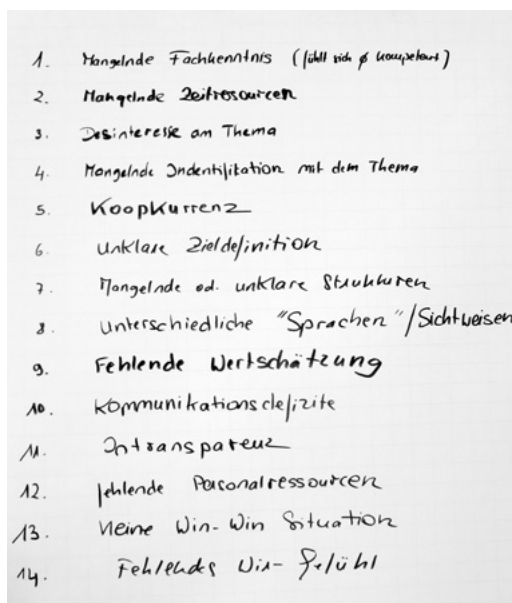 1. Mangelnde Fachkenntnis (fühlt sich ø kompetent)
2. Mangelnde Zeitresourcen
3. Desinteresse am Thema
4. Mangelnde Indentifikation mit dem Thema
5. KoopKurrenz
6. unklare Zieldefinition
7. Mangelnde od. unklare Strukturen
8. unterschiedliche "Sprachen"/Sichtweisen
9. Fehlende Wertschätzung
10. Kommunikationsdefizite
11. Intransparenz
12. fehlende Personalressourcen
13. Keine Win-Win Situation
14. Fehlendes Wir-Gefühl